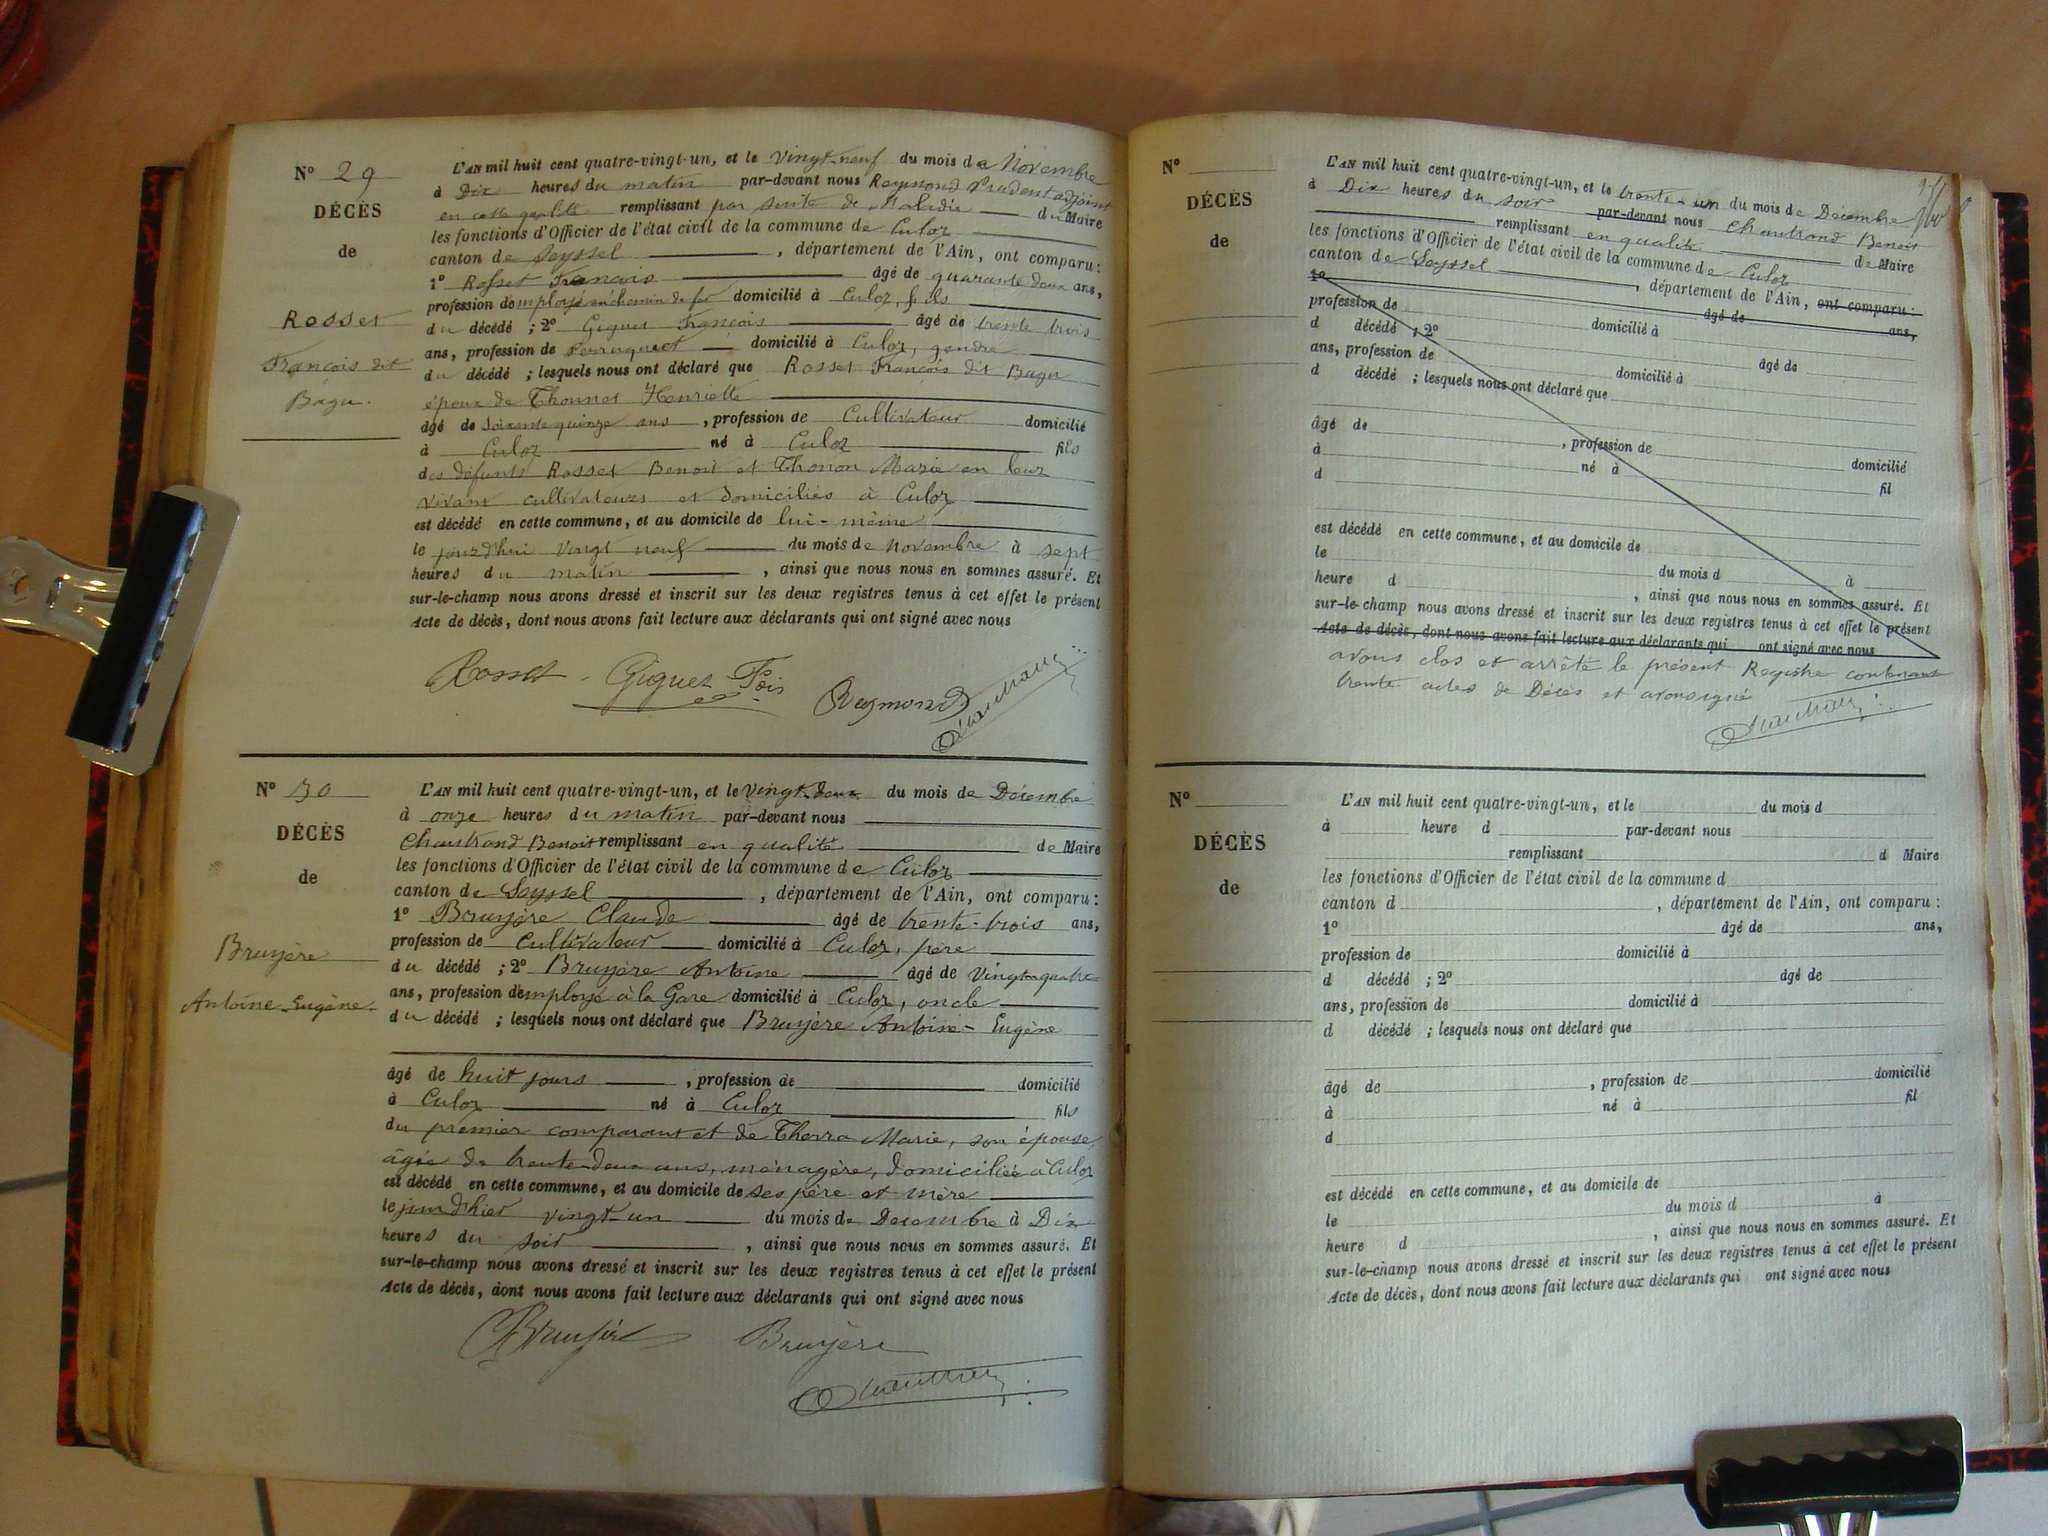 N° 29
DÉCÈS
de
Rosset
François dit
Bagu.
L'AN mil huit cent quatre-vingt-un, et le vingt-neuf du mois de Novembre
à Dix heures du matin par-devant nous Reymond Prudent adjoint
en cette qualité remplissant par suite de Maladie du Maire
les fonctions d'Officier de l'état civil de la commune de Culoz
canton de Seyssel, département de l'Ain, ont comparu :
1° Rosset François âgé de quarante deux ans,
profession de employé au chemin de fer domicilié à Culoz, fils
du décédé ; 2° Giguet François âgé de trente trois
ans, profession de Perruquier domicilié à Culoz, gendre
du décédé ; lesquels nous ont déclaré que Rosset François dit Bagu
époux de Thonnet Henriette
âgé de soixante quinze ans, profession de Cultivateur domicilié
à Culoz né à Culoz fils
des défunts Rosset Benoit et Thonon Marie en leur
vivant cultivateurs et domiciliés à Culoz
est décédé en cette commune, et au domicile de lui-même
le jourd'hui vingt neuf du mois de novembre à sept
heures du matin, ainsi que nous nous en sommes assuré. Et
sur-le-champ nous avons dressé et inscrit sur les deux registres tenus à cet effet le présent
Acte de décès, dont nous avons fait lecture aux déclarants qui ont signé avec nous
Rosset Giguet Fois Reymond Chautrand
N° 30
DÉCÈS
de
Bruyère
Antoine-Eugène
L'AN mil huit cent quatre-vingt-un, et le vingt-deux du mois de Décembre
à onze heures du matin par-devant nous
Chautrand Benoit remplissant en qualité de Maire
les fonctions d'Officier de l'état civil de la commune de Culoz
canton de Seyssel, département de l'Ain, ont comparu :
1° Bruyère Claude âgé de trente-trois ans,
profession de Cultivateur domicilié à Culoz, père
du décédé ; 2° Bruyère Antoine âgé de Vingt-quatre
ans, profession d'employé à la Gare domicilié à Culoz, oncle
du décédé ; lesquels nous ont déclaré que Bruyère Antoine-Eugène
âgé de huit jours, profession de domicilié
à Culoz né à Culoz fils
du premier comparant et de Therra Marie, son épouse,
âgée de trente-deux ans, ménagère, domiciliée à Culoz
est décédé en cette commune, et au domicile de ses père et mère
le jour d'hier vingt-un du mois de Décembre à Dix
heures du soir, ainsi que nous nous en sommes assuré. Et
sur-le-champ nous avons dressé et inscrit sur les deux registres tenus à cet effet le présent
Acte de décès, dont nous avons fait lecture aux déclarants qui ont signé avec nous
Bruyère Bruyère
Chautrand
N°
DÉCÈS
de
L'AN mil huit cent quatre-vingt-un, et le trente-un du mois de Décembre
à Dix heures du soir par-devant nous Chautrand Benoit
remplissant en qualité de Maire
les fonctions d'Officier de l'état civil de la commune de Culoz
canton de Seyssel, département de l'Ain, ont comparu :
1° âgé de ans,
profession de domicilié à
d décédé ; 2° âgé de
ans, profession de domicilié à
d décédé ; lesquels nous ont déclaré que
âgé de, profession de domicilié
à né à fil
d
est décédé en cette commune, et au domicile de
le du mois d à
heure d, ainsi que nous nous en sommes assuré. Et
sur-le-champ nous avons dressé et inscrit sur les deux registres tenus à cet effet le présent
Acte de décès, dont nous avons fait lecture aux déclarants qui ont signé avec nous
avons clos et arrêté le présent Registre contenant
trente actes de Décès et avons signé
Chautrand
N°
DÉCÈS
de
L'AN mil huit cent quatre-vingt-un, et le du mois d
à heure d par-devant nous
remplissant d Maire
les fonctions d'Officier de l'état civil de la commune d
canton d, département de l'Ain, ont comparu :
1° âgé de ans,
profession de domicilié à
d décédé ; 2° âgé de
ans, profession de domicilié à
d décédé ; lesquels nous ont déclaré que
âgé de, profession de domicilié
à né à fil
d
est décédé en cette commune, et au domicile de
le du mois d à
heure d, ainsi que nous nous en sommes assuré. Et
sur-le-champ nous avons dressé et inscrit sur les deux registres tenus à cet effet le présent
Acte de décès, dont nous avons fait lecture aux déclarants qui ont signé avec nous